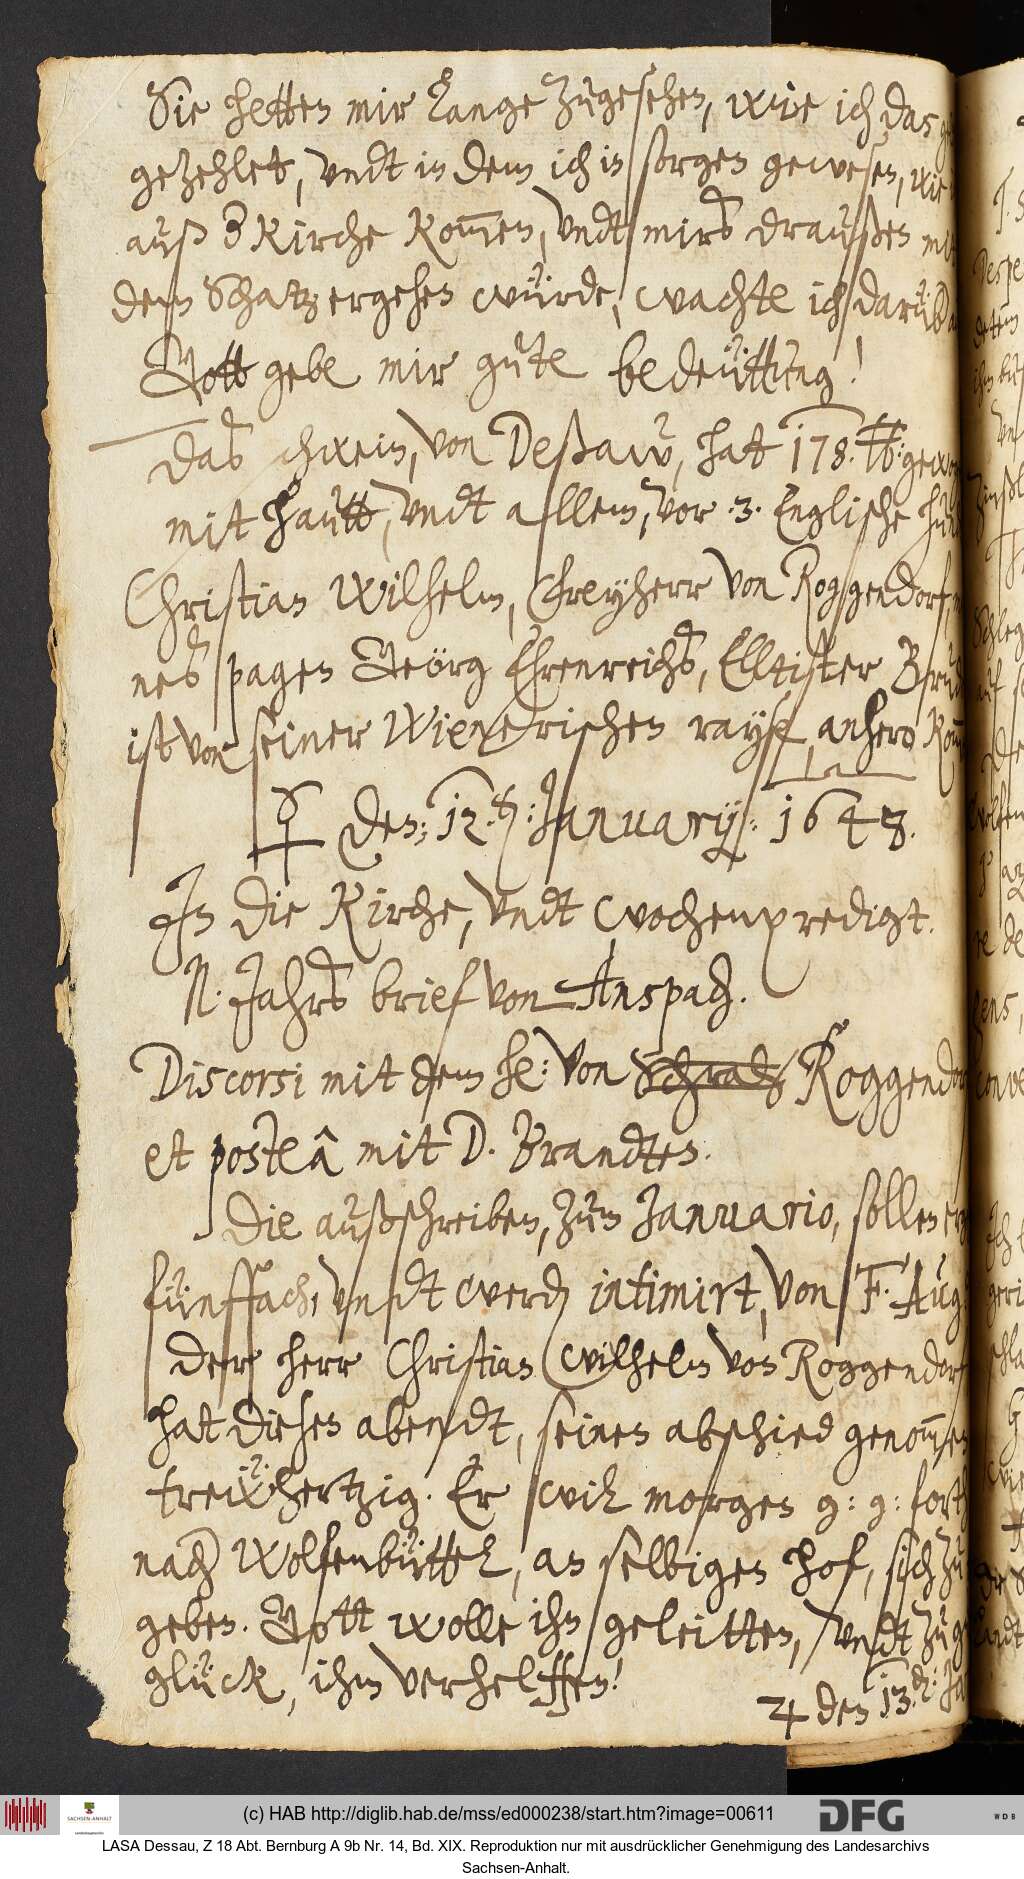 Sie hetten mir lange zugesehen, wie ich das
gezehlet, undt in dem ich in sorgen gewesen, wie
auß d Kirche kom̄en, undt mirs draußen mit
dem Schatz ergehen würde, wachte ich darüb
Gott gebe mir gute bedeüttung!
Das schwein, von Deßaw, hatt 178. ℔: gewo
mit hautt, undt allem, vor .3. Englische hun
Christian Wilhelm, Freyherr von Roggendorf,
nes pagen Geörg Ehrenreichs, Elltister Brud
ist von seiner Wienerischen rayse anhero kom̄
☿ den: 12.ten: January: 1648.
In die Kirche, undt wochenpredigt.
N. Jahrs brief von Anspach.
Discorsi mit dem he: von Schrat Roggendor
et posteâ mit D. Brandten.
Die außschreiben, zum Januario, sollen
fünffach, undt werden intimirt, von F. Aug:
Der herr Christian Wilhelm von Roggendorf
hat diesen abendt, seinen abschied genom̄en
treühertzig. Er wil morgen g: g: fort
nach Wolfenbüttel, an selbigen hof, sich zu
geben. Gott wolle ihn geleitten, undt zu
glück, ihm verhelffen!
♃ den 13.ten: Ja
(c) HAB http://diglib.hab.de/mss/ed000238/start.htm?image=00611
DFG
WDB
SACHSEN-ANHALT
LASA Dessau, Z 18 Abt. Bernburg A 9b Nr. 14, Bd. XIX. Reproduktion nur mit ausdrücklicher Genehmigung des Landesarchivs
Sachsen-Anhalt.